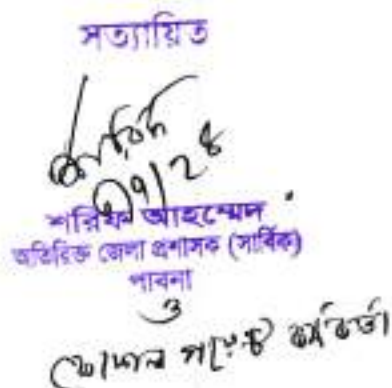 সত্যায়িত
শরিফ আহম্মেদ
অতিরিক্ত জেলা প্রশাসক (সার্বিক)
পাবনা
ও
ফোকাল পয়েন্ট কর্মকর্তা